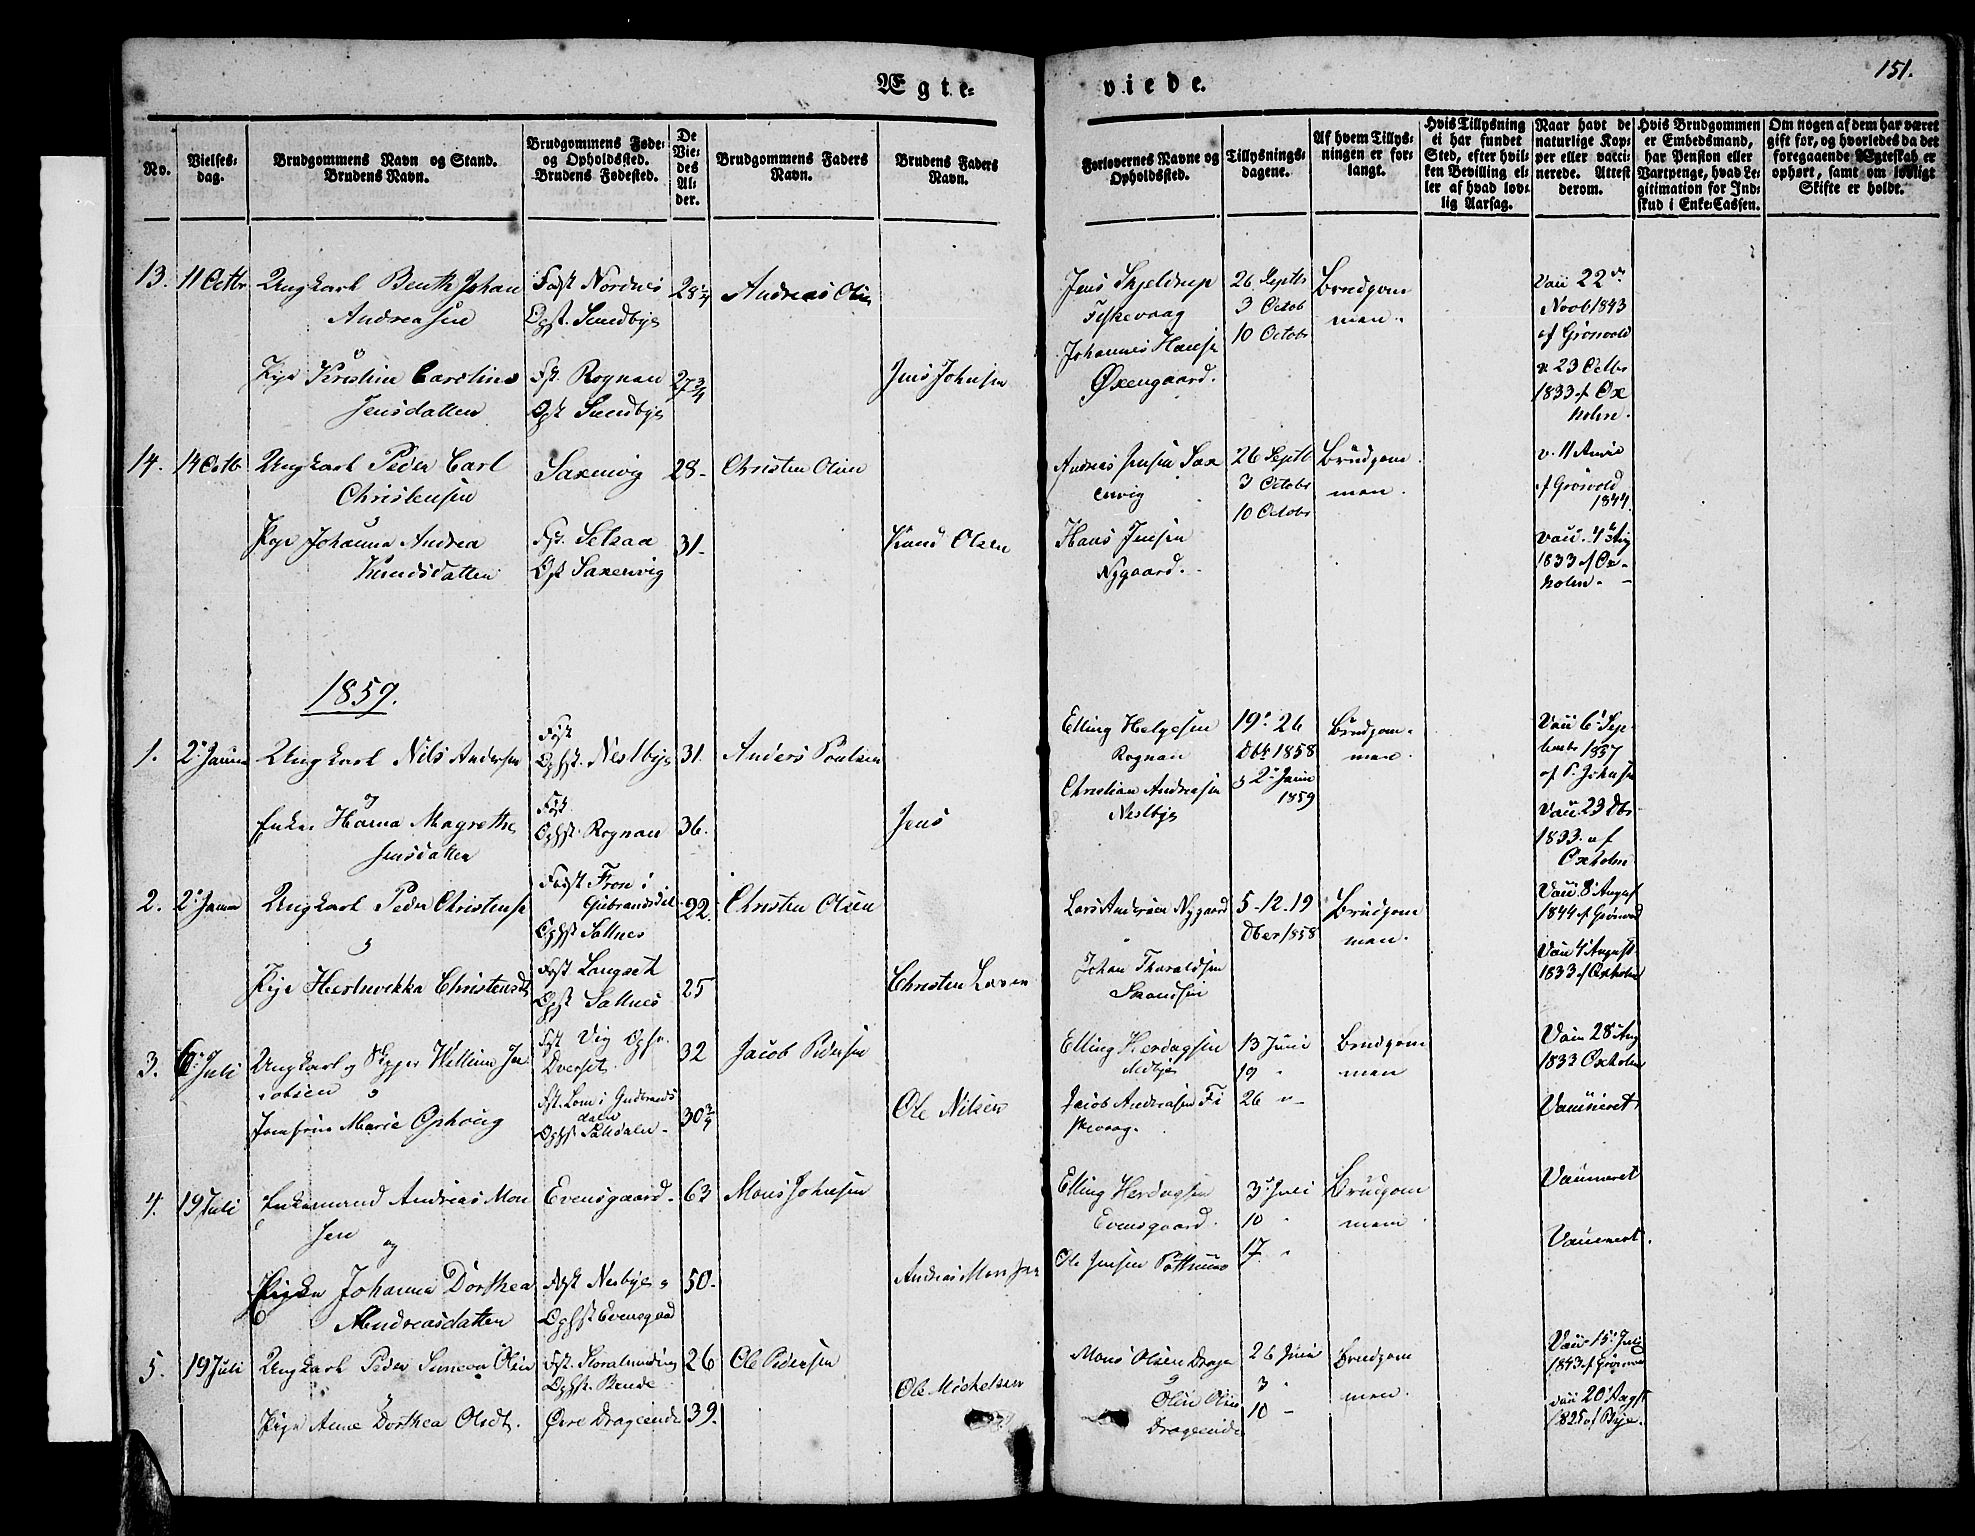 Ægte-
viede.
151.
No.
Vielses-
dag.
Brudgommens Navn og Stand.
Brudens Navn.
Brudgommens Føde-
og Opholdssted.
Brudens Fødested.
De
Vie-
des
Al-
der.
Brudgommens Faders
Navn.
Brudens Faders
Navn.
Forlovernes Navne og
Opholdssted.
Tillysnings-
dagene.
Af hvem Tillys-
ningen er for-
langt.
Hvis Tillysning
ei har fundet
Sted, efter hvil-
ken Bevilling el-
ler af hvad lov-
lig Aarsag.
Naar havt de
naturlige Kop-
per eller vacci-
nerede. Attest
derom.
Hvis Brudgommen
er Embedsmand,
har Pension eller
Vartpenge, hvad Le-
gitimation for Ind-
skud i Enke-Cassen.
Om nogen af dem har været
gift før, og hvorledes da det
foregaaende Ægteskab er
ophørt, samt om lovligt
Skifte er holdt.
13. 11 Octbr Ungkarl Benth Johan
Andreasen
Fødst Nordnes
Opst. Sundbye
28 1/4 Andreas Olsen
Jens Skjeldrup
Fiskevaag
26 Septbr
3 Octob
10 Octobr
Brudgom
men.
Vacc 22de
Novb 1843
af Grönvold
og
Pige Kristine Caroline
Jensdatter
Fst. Rognan
Opst Sundbye
27 3/4
Jens Johnsen
Johannes Hansen
Øxengaard.
v 23 Octbr
1833 af Ox
holm.
14. 14 Octb Ungkarl Peder Carl
Christensen
Saxenvig
28 - Christen Olsen
Andreas Jensen Sax
envig
26 Septb
3 Octobr
10 Octobr
Brudgom
men.
v. 11
af Grönvold
1844
Pige Johanna Andrea
Knudsdatter
Fst. Setsaa
Opst Saxenvig
31 -
Knud Olsen
Hans Jensen
Nygaard.
vacc. 4de Aug
1833 af Ox-
holm. -
1859.
1. 2. Janua Ungkarl Nils Andersen
Fdst
Ophst. Nestbye
31. Anders Poulsen
Elling Helgesen
Rognan
19. 26
Dbr 1858
2. Janu
1859
Brudgom-
men.
Vacc 6. Sep
tembr 1837
af P. Johnsen
og
Enke Hanna Magrethe
Jensdatter
Fdst
Ophst. Rognan
36.
Jens
Christian Andreasen
Nestbye
Vacc. 23 Dbr
1833. af
Oxholm
2. 2. Janua Ungkarl Peder Christensen
Fødst. Fron i
Gubrandsdal
Ophst Saltnes
22. Christen Olsen
Lars Andersen Nygaard
5 - 12. 19
Dber 1858
Brudgom
men.
Vacc 8. August
1844 af Grönvold
Pige Christensdt
Fdst Langset
Opst Saltnes
25
Christen
Johan Tharaldsen
Vacc 4. August
1833 af Oxholm
3. 6. Juli Ungkarl og Skyper Willium Ja
cobsen
Fdst Vig Ophn.
Dverset
32 Jacob Pedersen
Elling Herdagsen
Nestbye
13 Juni
19 "
26 "
Brudgom
men
Vacc 28. Aug
1833 Oxholm
Jomfrue Marie Ophoug
Fst. Lom i Gudbrands
dalen
Ophst. Saltdalen -
30 3/4
Ole Nilsen
Jacob Andreasen Fi
skevaag.
Vaccineret
4. 19 Juli Enkemand Andreas Mon
sen
og
Evensgaard. 63 Mons Johnsen
Elling Herdagsen
Evensgaard.
3. Juli
10 "
17 "
Brudgom
men
Vaccineret
Pige Johanna Dorthea
Andreasdatter
Fdst Nesbye.
Ophst Evensgaard
50.
Andreas Monsen
Ole Jensen Pothuus
Vaccineret.
5. 19 Juli Ungkarl Peder Olsen
Fst. Storalmending
Ophst. Bende
26 Ole Pedersen
Mons Olsen Drage
26 Juni
3 "
10 -
Brudgom
men.
Vacc 15. Juli
1843 af Grönvold
og
Pige Anne Dorthea Olsdt.
Øvre Drageeide
39.
Ole Mickelsen
Olsen
Drageeide
vacc 20. Augst
1825 af Bye.